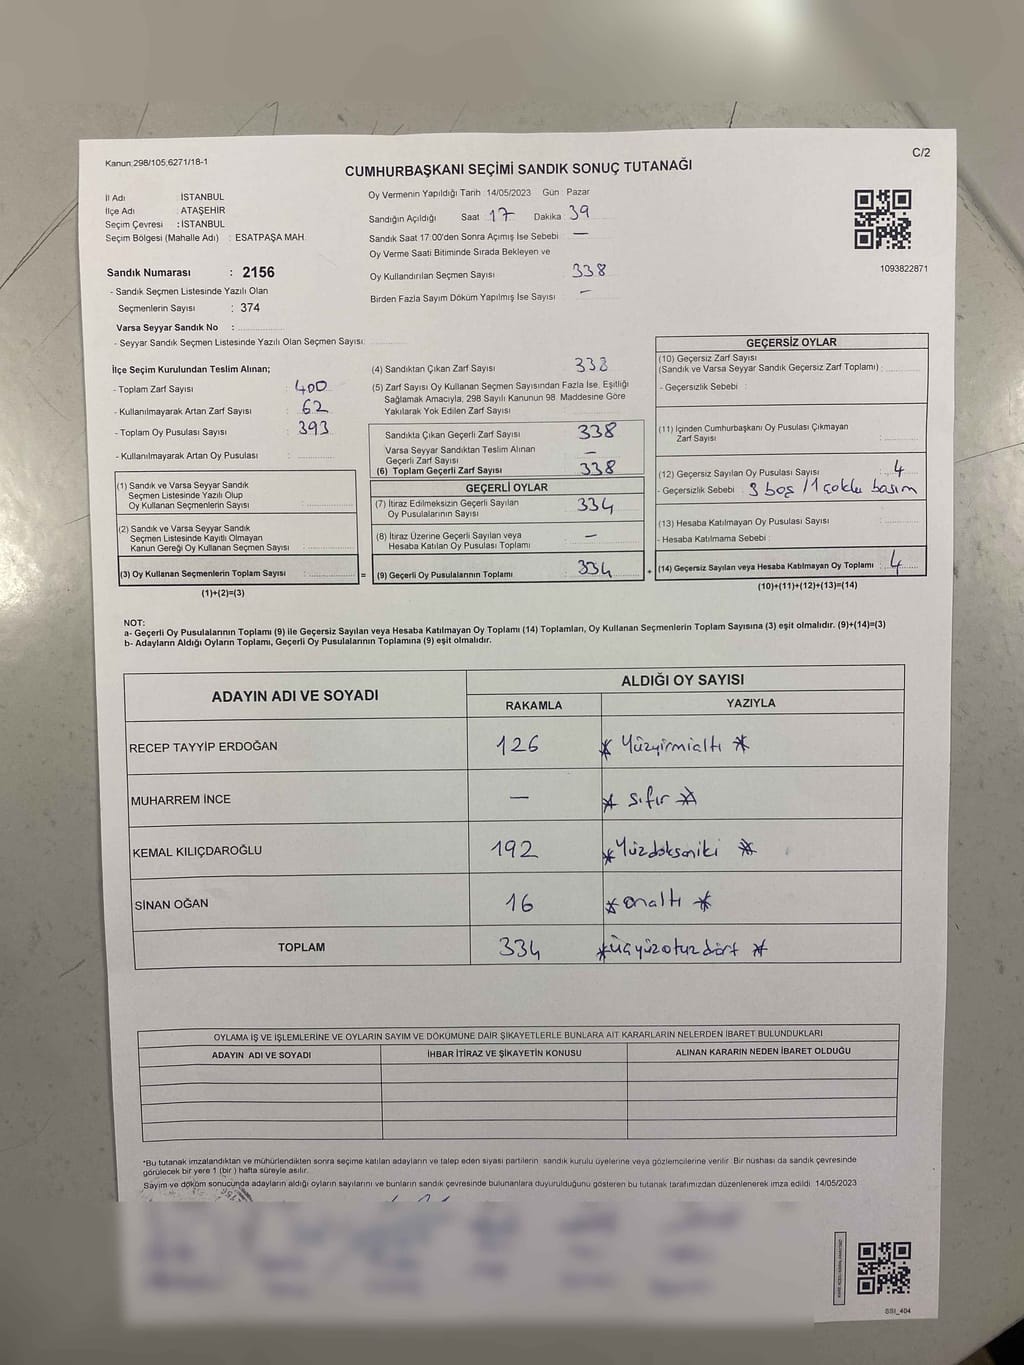 Kanun:298/105,6271/18-1
C/2
CUMHURBAŞKANI SEÇİMİ SANDIK SONUÇ TUTANAĞI
İl Adı : İSTANBUL
İlçe Adı : ATAŞEHİR
Seçim Çevresi : İSTANBUL
Seçim Bölgesi (Mahalle Adı) : ESATPAŞA MAH.
Sandık Numarası : 2156
- Sandık Seçmen Listesinde Yazılı Olan
Seçmenlerin Sayısı : 374
Varsa Seyyar Sandık No :
- Seyyar Sandık Seçmen Listesinde Yazılı Olan Seçmen Sayısı:
Oy Vermenin Yapıldığı Tarih : 14/05/2023 Gün : Pazar
Sandığın Açıldığı Saat 17 Dakika 39
Sandık Saat 17:00'den Sonra Açımış İse Sebebi : —
Oy Verme Saati Bitiminde Sırada Bekleyen ve
Oy Kullandırılan Seçmen Sayısı : 338
Birden Fazla Sayım Döküm Yapılmış İse Sayısı : —
1093822871
İlçe Seçim Kurulundan Teslim Alınan;
- Toplam Zarf Sayısı : 400
- Kullanılmayarak Artan Zarf Sayısı : 62
- Toplam Oy Pusulası Sayısı : 393
- Kullanılmayarak Artan Oy Pusulası :
(1) Sandık ve Varsa Seyyar Sandık
Seçmen Listesinde Yazılı Olup
Oy Kullanan Seçmenlerin Sayısı :
(2) Sandık ve Varsa Seyyar Sandık
Seçmen Listesinde Kayıtlı Olmayan
Kanun Gereği Oy Kullanan Seçmen Sayısı :
(3) Oy Kullanan Seçmenlerin Toplam Sayısı : =
(1)+(2)=(3)
(4) Sandıktan Çıkan Zarf Sayısı : 338
(5) Zarf Sayısı Oy Kullanan Seçmen Sayısından Fazla İse, Eşitliği
Sağlamak Amacıyla, 298 Sayılı Kanunun 98. Maddesine Göre
Yakılarak Yok Edilen Zarf Sayısı :
Sandıkta Çıkan Geçerli Zarf Sayısı : 338
Varsa Seyyar Sandıktan Teslim Alınan
Geçerli Zarf Sayısı : —
(6) Toplam Geçerli Zarf Sayısı : 338
GEÇERLİ OYLAR
(7) İtiraz Edilmeksizin Geçerli Sayılan
Oy Pusulalarının Sayısı : 334
(8) İtiraz Üzerine Geçerli Sayılan veya
Hesaba Katılan Oy Pusulası Toplamı : —
(9) Geçerli Oy Pusulalarının Toplamı : 334 +
GEÇERSİZ OYLAR
(10) Geçersiz Zarf Sayısı
(Sandık ve Varsa Seyyar Sandık Geçersiz Zarf Toplamı) :
- Geçersizlik Sebebi :
(11) İçinden Cumhurbaşkanı Oy Pusulası Çıkmayan
Zarf Sayısı :
(12) Geçersiz Sayılan Oy Pusulası Sayısı : 4
- Geçersizlik Sebebi : 3 boş / 1 çoklu basım
(13) Hesaba Katılmayan Oy Pusulası Sayısı :
- Hesaba Katılmama Sebebi :
(14) Geçersiz Sayılan veya Hesaba Katılmayan Oy Toplamı : 4
(10)+(11)+(12)+(13)=(14)
NOT:
a- Geçerli Oy Pusulalarının Toplamı (9) ile Geçersiz Sayılan veya Hesaba Katılmayan Oy Toplamı (14) Toplamları, Oy Kullanan Seçmenlerin Toplam Sayısına (3) eşit olmalıdır. (9)+(14)=(3)
b- Adayların Aldığı Oyların Toplamı, Geçerli Oy Pusulalarının Toplamına (9) eşit olmalıdır.
ADAYIN ADI VE SOYADI ALDIĞI OY SAYISI
RAKAMLA YAZIYLA
RECEP TAYYİP ERDOĞAN 126 * Yüzyirmialtı *
MUHARREM İNCE — * sıfır *
KEMAL KILIÇDAROĞLU 192 * Yüzdoksaniki *
SİNAN OĞAN 16 * onaltı *
TOPLAM 334 * üçyüzotuzdört *
OYLAMA İŞ VE İŞLEMLERİNE VE OYLARIN SAYIM VE DÖKÜMÜNE DAİR ŞİKAYETLERLE BUNLARA AİT KARARLARIN NELERDEN İBARET BULUNDUKLARI
ADAYIN ADI VE SOYADI İHBAR İTİRAZ VE ŞİKAYETİN KONUSU ALINAN KARARIN NEDEN İBARET OLDUĞU
*Bu tutanak imzalandıktan ve mühürlendikten sonra seçime katılan adayların ve talep eden siyasi partilerin sandık kurulu üyelerine veya gözlemcilerine verilir. Bir nüshası da sandık çevresinde
görülecek bir yere 1 (bir ) hafta süreyle asılır.
Sayım ve döküm sonucunda adayların aldığı oyların sayılarını ve bunların sandık çevresinde bulunanlara duyurulduğunu gösteren bu tutanak tarafımızdan düzenlenerek imza edildi. 14/05/2023
SSI_404